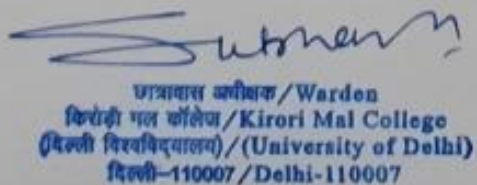 छात्रावास अधीक्षक/Warden
किरोड़ी मल कॉलेज/Kirori Mal College
(दिल्ली विश्वविद्यालय)/(University of Delhi)
दिल्ली-110007/Delhi-110007